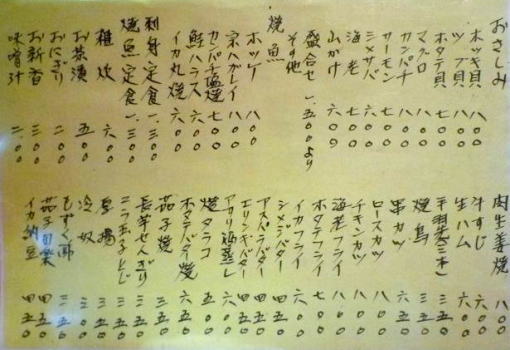 おさしみ
ホッキ貝 八〇〇
ツブ貝 八〇〇
ホタテ貝 七〇〇
マグロ 八〇〇
カンパチ 八〇〇
サーモン 七〇〇
シメサバ 六〇〇
海老 七〇〇
山かけ 六〇〇
盛合せ 一、五〇〇より
その他
焼魚
ホッケ 八〇〇
宗八ガレイ 八〇〇
カンパチ塩焼 七〇〇
鮭ハラス 六〇〇
イカ丸焼 六〇〇
刺身定食 一、三〇〇
焼魚定食 一、三〇〇
雑炊 六〇〇
お茶漬 五〇〇
おにぎり 二〇〇
お新香 三〇〇
味噌汁 二〇〇
肉生姜焼 八〇〇
牛すじ 六〇〇
生ハム 六〇〇
手羽先(三本) 三五〇
焼鳥 六五〇
串カツ 八〇〇
ロースカツ 八〇〇
チキンカツ 八〇〇
海老フライ 八〇〇
ホタテフライ 七〇〇
イカフライ 六〇〇
シメジバター 四五〇
アスパラバター 五〇〇
エリンギバター 四五〇
アサリ酒蒸し 六〇〇
焼タラコ 五〇〇
ホタテバター焼 六五〇
茄子焼 三五〇
長芋せんぎり 三五〇
ニラ玉子とじ 三五〇
厚揚 三五〇
冷奴 三〇〇
もずく酢 三五〇
茄子田楽 四五〇
イカ納豆 四五〇